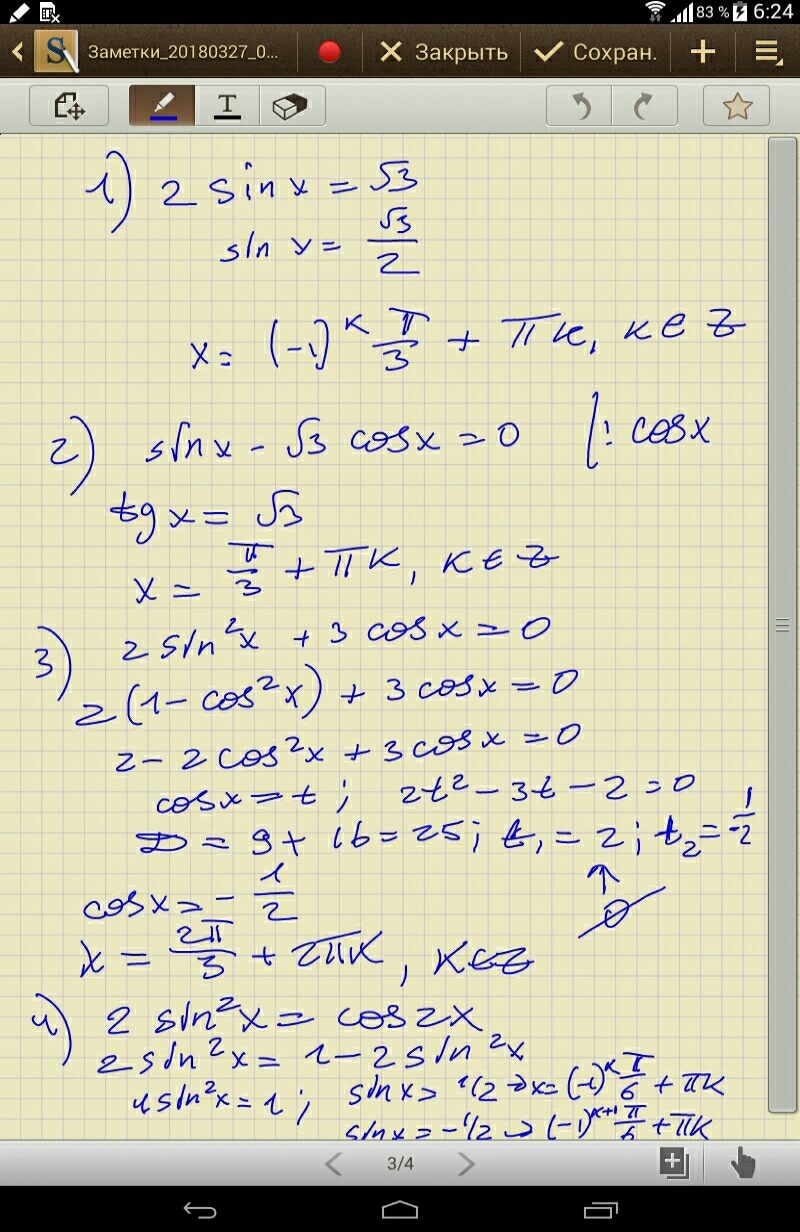 83 % 6:24
Заметки_20180327_0... Закрыть Сохран.
T
1) 2 sin x = √3
sin x = √3/2
x = (-1)^k π/3 + πk, k ∈ Z
2) sin x - √3 cos x = 0 |: cos x
tg x = √3
x = π/3 + πk, k ∈ Z
3) 2 sin²x + 3 cos x = 0
2(1 - cos²x) + 3 cos x = 0
2 - 2 cos²x + 3 cos x = 0
cos x = t; 2t² - 3t - 2 = 0
D = 9 + 16 = 25; t₁ = 2; t₂ = -1/2
↑
∅
cos x = -1/2
x = 2π/3 + 2πk, k ∈ Z
4) 2 sin²x = cos 2x
2 sin²x = 1 - 2 sin²x
4 sin²x = 1; sin x = 1/2 → x = (-1)^k π/6 + πk
sin x = -1/2 → (-1)^(k+1) π/6 + πk
3/4